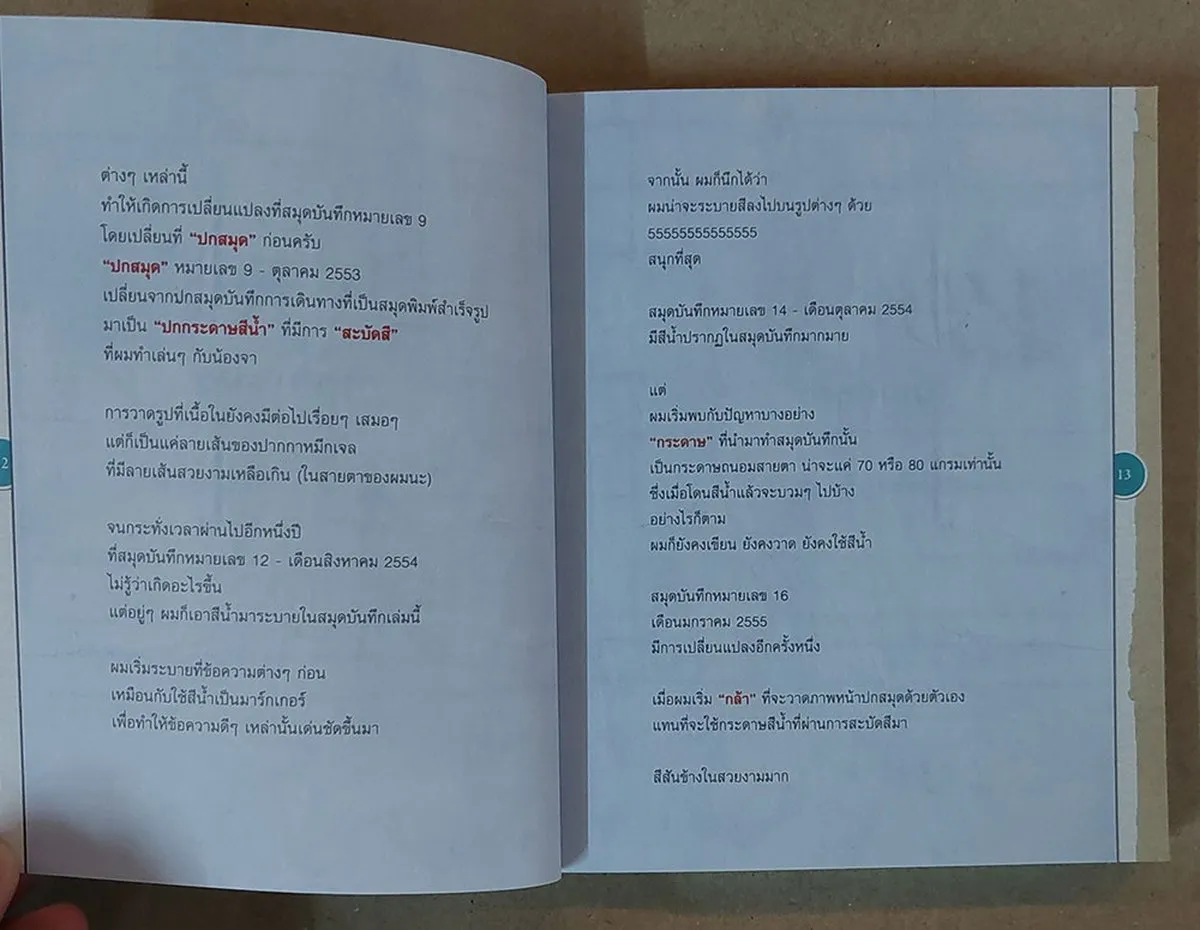 ต่างๆ เหล่านี้
ทำให้เกิดการเปลี่ยนแปลงที่สมุดบันทึกหมายเลข 9
โดยเปลี่ยนที่ “ปกสมุด” ก่อนครับ
“ปกสมุด” หมายเลข 9 - ตุลาคม 2553
เปลี่ยนจากปกสมุดบันทึกการเดินทางที่เป็นสมุดพิมพ์สำเร็จรูป
มาเป็น “ปกกระดาษสีน้ำ” ที่มีการ “สะบัดสี”
ที่ผมทำเล่นๆ กับน้องจา
การวาดรูปที่เนื้อในยังคงมีต่อไปเรื่อยๆ เสมอๆ
แต่ก็เป็นแค่ลายเส้นของปากกาหมึกเจล
ที่มีลายเส้นสวยงามเหลือเกิน (ในสายตาของผมนะ)
จนกระทั่งเวลาผ่านไปอีกหนึ่งปี
ที่สมุดบันทึกหมายเลข 12 - เดือนสิงหาคม 2554
ไม่รู้ว่าเกิดอะไรขึ้น
แต่อยู่ๆ ผมก็เอาสีน้ำมาระบายในสมุดบันทึกเล่มนี้
ผมเริ่มระบายที่ข้อความต่างๆ ก่อน
เหมือนกับใช้สีน้ำเป็นมาร์กเกอร์
เพื่อทำให้ข้อความดีๆ เหล่านั้นเด่นชัดขึ้นมา
2
จากนั้น ผมก็นึกได้ว่า
ผมน่าจะระบายสีลงไปบนรูปต่างๆ ด้วย
55555555555555
สนุกที่สุด
สมุดบันทึกหมายเลข 14 - เดือนตุลาคม 2554
มีสีน้ำปรากฏในสมุดบันทึกมากมาย
แต่
ผมเริ่มพบกับปัญหาบางอย่าง
“กระดาษ” ที่นำมาทำสมุดบันทึกนั้น
เป็นกระดาษถนอมสายตา น่าจะแค่ 70 หรือ 80 แกรมเท่านั้น
ซึ่งเมื่อโดนสีน้ำแล้วจะบวมๆ ไปบ้าง
อย่างไรก็ตาม
ผมก็ยังคงเขียน ยังคงวาด ยังคงใช้สีน้ำ
สมุดบันทึกหมายเลข 16
เดือนมกราคม 2555
มีการเปลี่ยนแปลงอีกครั้งหนึ่ง
เมื่อผมเริ่ม “กล้า” ที่จะวาดภาพหน้าปกสมุดด้วยตัวเอง
แทนที่จะใช้กระดาษสีน้ำที่ผ่านการสะบัดสีมา
สีสันข้างในสวยงามมาก
13